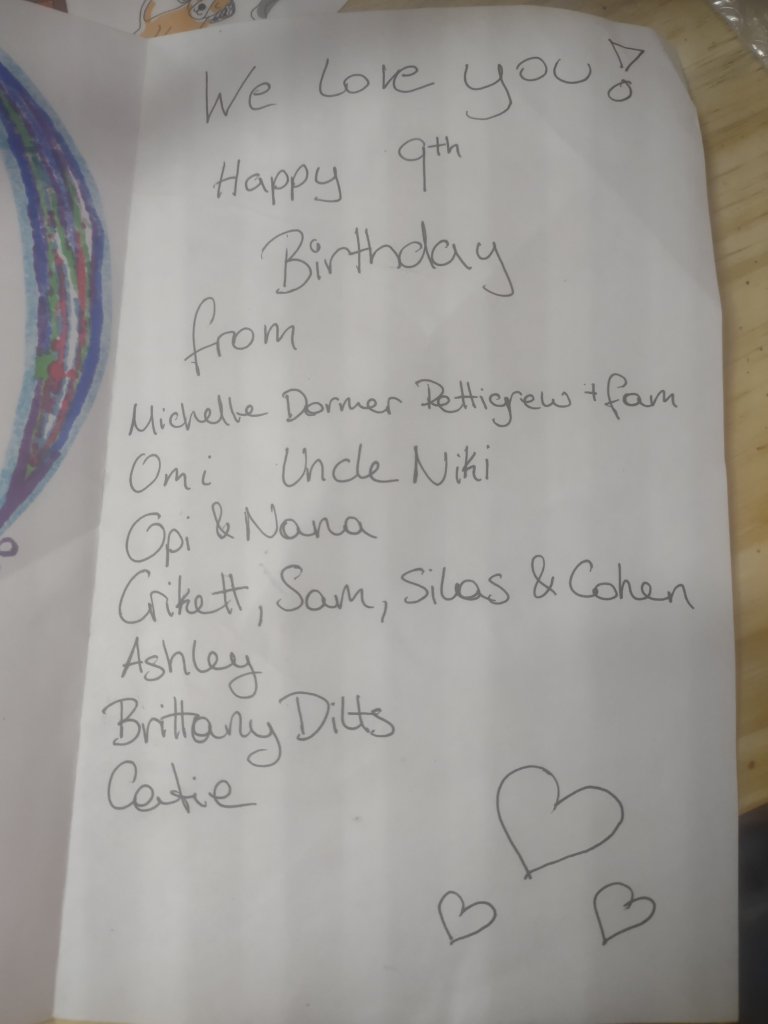 We Love you!
Happy 9th
Birthday
from
Michelle Dormer Pettigrew + fam
Omi Uncle Niki
Opi & Nana
Crikett, Sam, Silas & Cohen
Ashley
Brittany Dilts
Catie